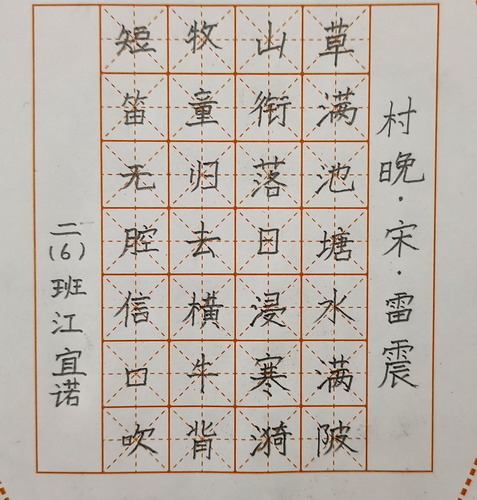 村晚·宋·雷震
草满池塘水满陂
山衔落日浸寒漪
牧童归去横牛背
短笛无腔信口吹
二(6)班江宜诺